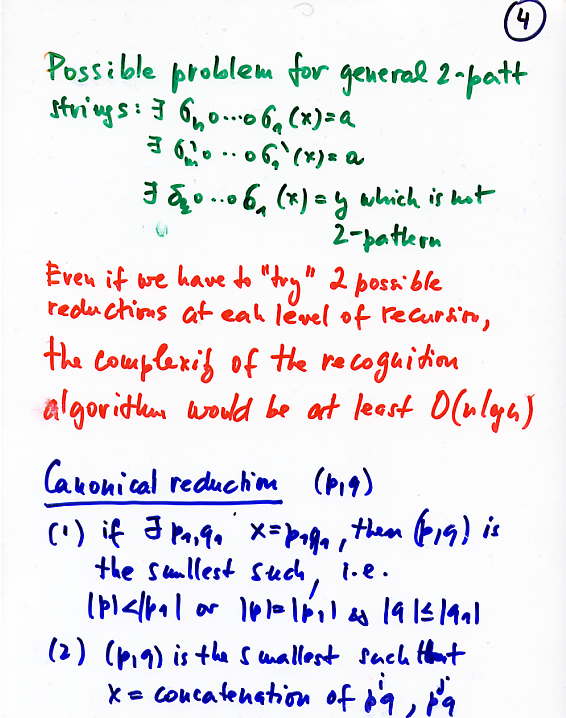 4
Possible problem for general 2-patt
strings: ∃ σₙ∘…∘σ₁(x)=a
∃ σₘ'∘..∘σ₁'(x)=a
∃ ∘..∘σ₁(x)=y which is not
2-pattern
Even if we have to "try" 2 possible
reductions at eah level of recursion,
the complexity of the recognition
algorithm would be at least O(nlogn)
Canonical reduction (p,q)
(1) if ∃ p₁,q₁ x=p₁q₁, then (p,q) is
the smallest such, i.e.
|p|<|p₁| or |p|=|p₁| |q|≤|q₁|
(2) (p,q) is the smallest such that
x = concatenation of pⁱq, pʲq